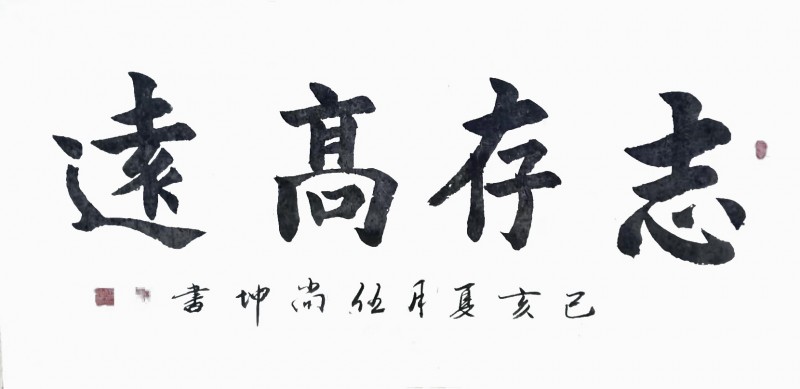 志存高遠
己亥夏月伍尚坤书